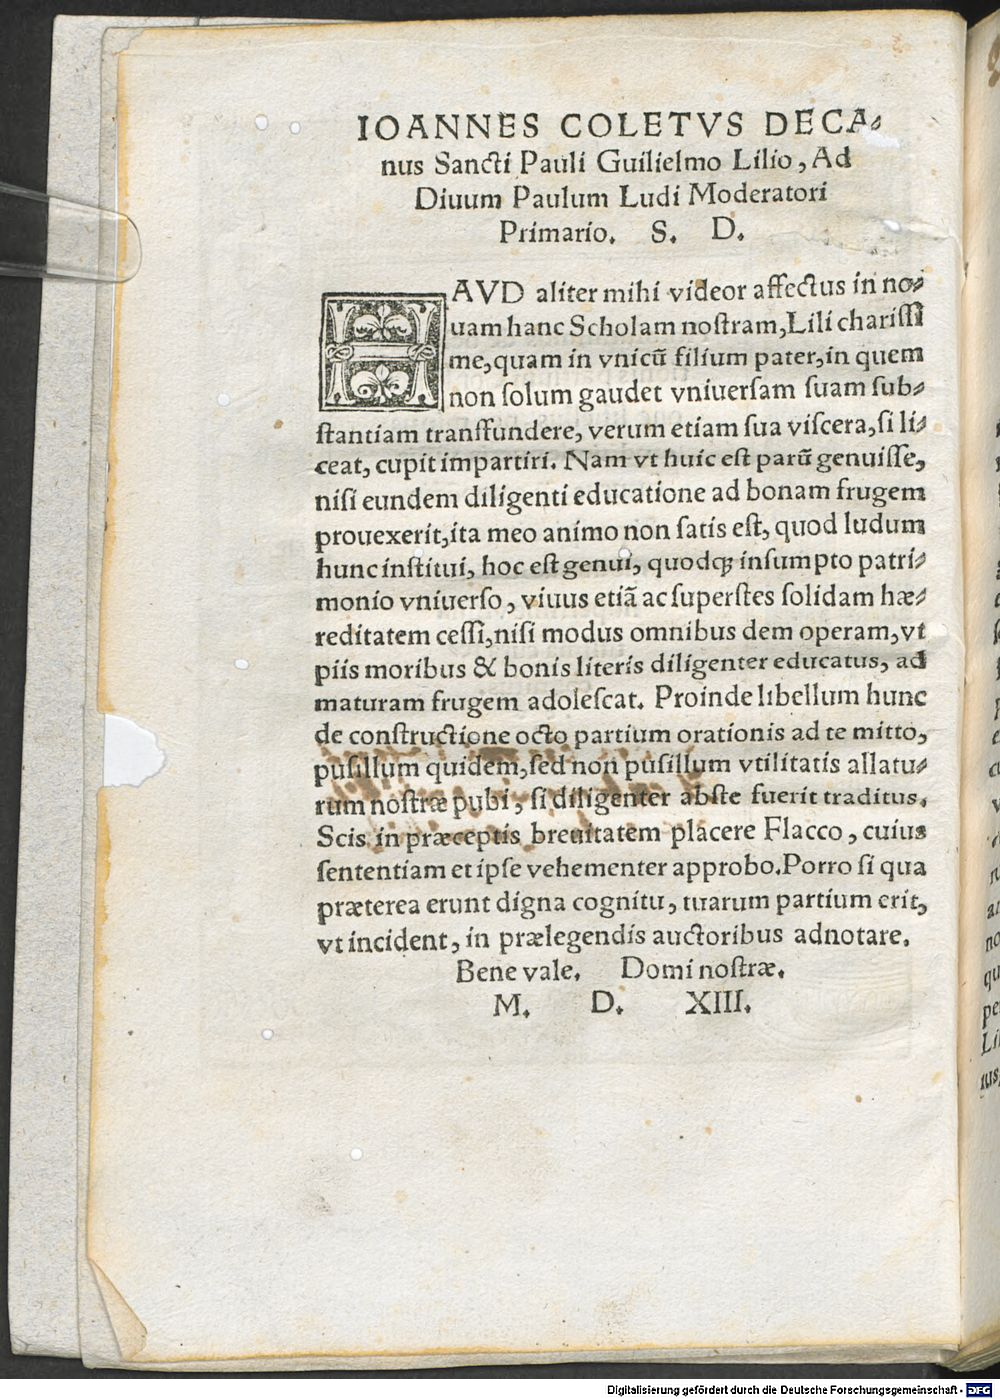 IOANNES COLETVS DECA⸗
nus Sancti Pauli Guilielmo Lilio, Ad
Diuum Paulum Ludi Moderatori
Primario. S. D.
HAVD aliter mihi videor affectus in no⸗
uam hanc Scholam noſtram, Lili chariſſi
me, quam in vnicū filium pater, in quem
non ſolum gaudet vniuerſam ſuam ſub⸗
ſtantiam tranſfundere, verum etiam ſua viſcera, ſi li⸗
ceat, cupit impartiri. Nam vt huic eſt parū genuiſſe,
niſi eundem diligenti educatione ad bonam frugem
prouexerit, ita meo animo non ſatis eſt, quod ludum
hunc inſtitui, hoc eſt genui, quodꝗ inſumpto patri⸗
monio vniuerſo, viuus etiā ac ſuperſtes ſolidam hæ⸗
reditatem ceſſi, niſi modus omnibus dem operam, vt
piis moribus & bonis literis diligenter educatus, ad
maturam frugem adoleſcat. Proinde libellum hunc
de conſtructione octo partium orationis ad te mitto,
puſillum quidem, ſed non puſillum vtilitatis allatu⸗
rum noſtræ pubi, ſi diligenter abſte fuerit traditus.
Scis in præceptis breuitatem placere Flacco, cuius
ſententiam et ipſe vehementer approbo. Porro ſi qua
præterea erunt digna cognitu, tuarum partium erit,
vt incident, in prælegendis auctoribus adnotare.
Bene vale. Domi noſtræ.
M. D. XIII.
Digitalisierung gefördert durch die Deutsche Forschungsgemeinschaft - DFG